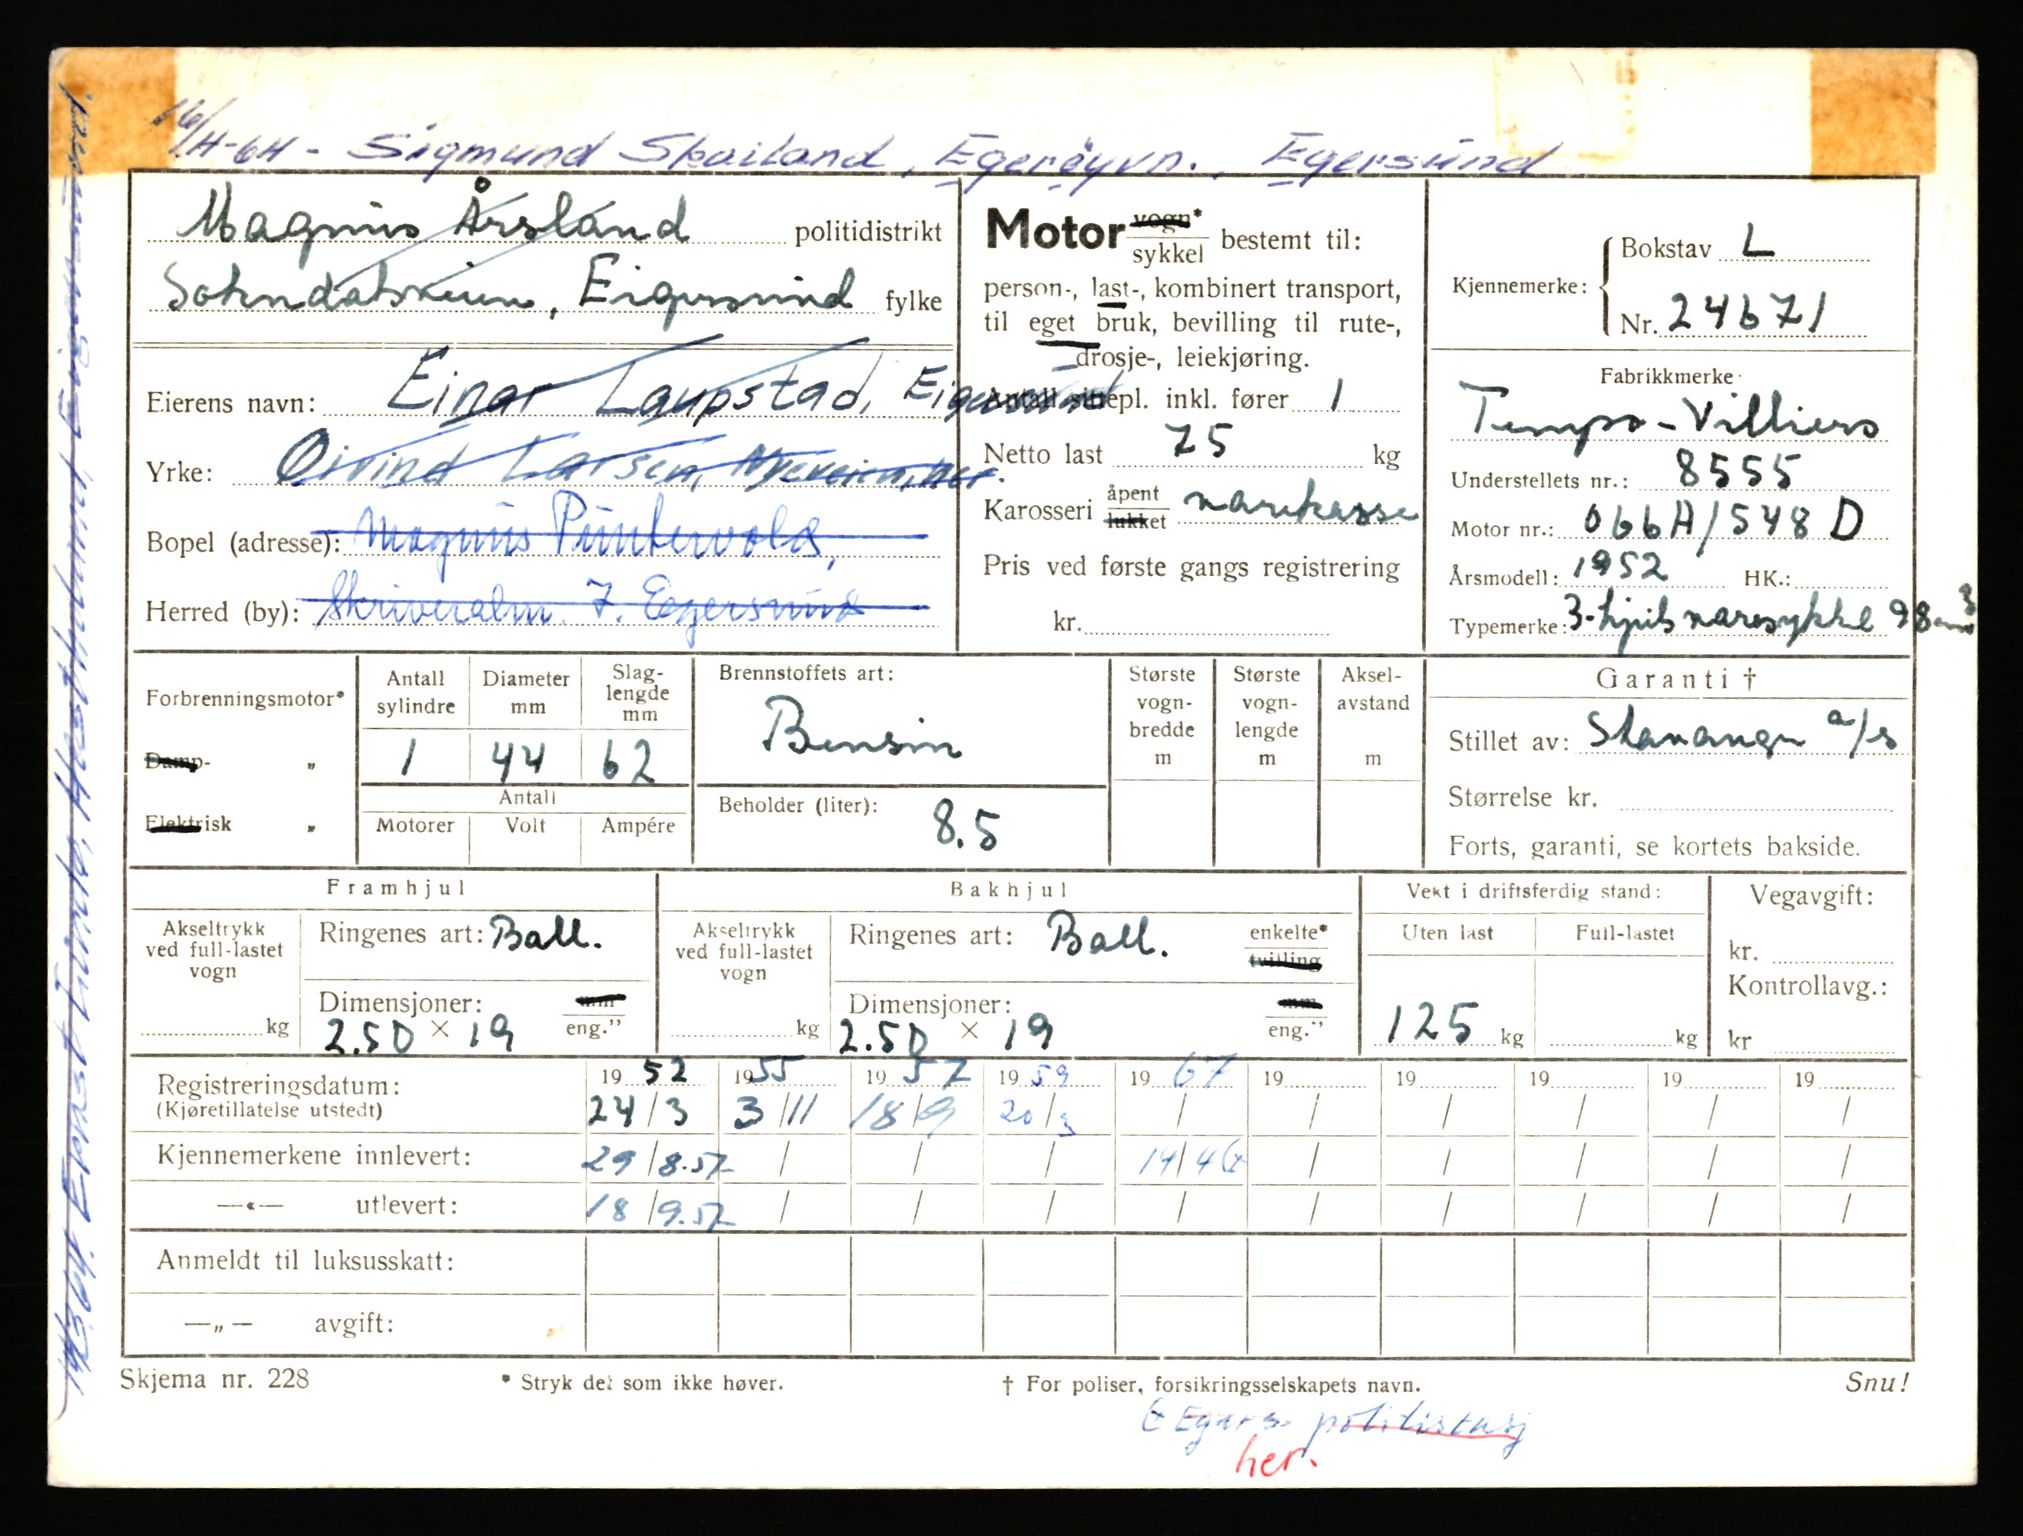 16/4-64 - Sigmund Skailand, Egerøyvn., Egersund
Magnus Årsland politidistrikt
Eigersund fylke
Eierens navn: Einar Laupstad, Eigersund
Yrke: Øivind Larsen, Nyeveien, her.
Bopel (adresse): Magnus Puntervold,
Herred (by): Skriveralm. 7. Egersund
Motor vogn* sykkel bestemt til:
person-, last-, kombinert transport,
til eget bruk, bevilling til rute-,
drosje-, leiekjøring.
Antall sittepl. inkl. fører 1
Netto last 75 kg
Karosseri åpent lukket varekasse
Pris ved første gangs registrering
kr.
Kjennemerke: Bokstav L
Nr. 24671
Fabrikkmerke
Tempo-Villiers
Understellets nr.: 8555
Motor nr.: 066A/548 D
Årsmodell: 1952 HK.:
Typemerke: 3-hjuls varesykkel 98 cm3
Forbrenningsmotor*
Damp- „
Elektrisk „
Antall sylindre 1
Diameter mm 44
Slag-lengde mm 62
Antall
Motorer Volt Ampére
Brennstoffets art:
Bensin
Beholder (liter): 8.5
Største vogn-bredde m
Største vogn-lengde m
Aksel-avstand m
Garanti †
Stillet av: Stavanger a/s
Størrelse kr.
Forts, garanti, se kortets bakside.
Framhjul
Akseltrykk ved full-lastet vogn kg
Ringenes art: Ball.
Dimensjoner: mm eng."
2.50 × 19
Bakhjul
Akseltrykk ved full-lastet vogn kg
Ringenes art: Ball. enkelte* tvilling
Dimensjoner: mm eng."
2.50 × 19
Vekt i driftsferdig stand:
Uten last Full-lastet
125 kg kg
Vegavgift:
kr.
Kontrollavg.:
kr
Registreringsdatum: 19 52 1955 19 57 19 59 19 67 19 19 19 19 19
(Kjøretillatelse utstedt) 24/3 3/11 18/9 20/3 / / / / / /
Kjennemerkene innlevert: 29/8.57 / / / 14/4 / / / / /
—«— utlevert: 18/9.57 / / / / / / / / /
Anmeldt til luksusskatt:
—„— avgift:
Skjema nr. 228 * Stryk det som ikke høver. † For poliser, forsikringsselskapets navn. Snu!
politistasj
her.